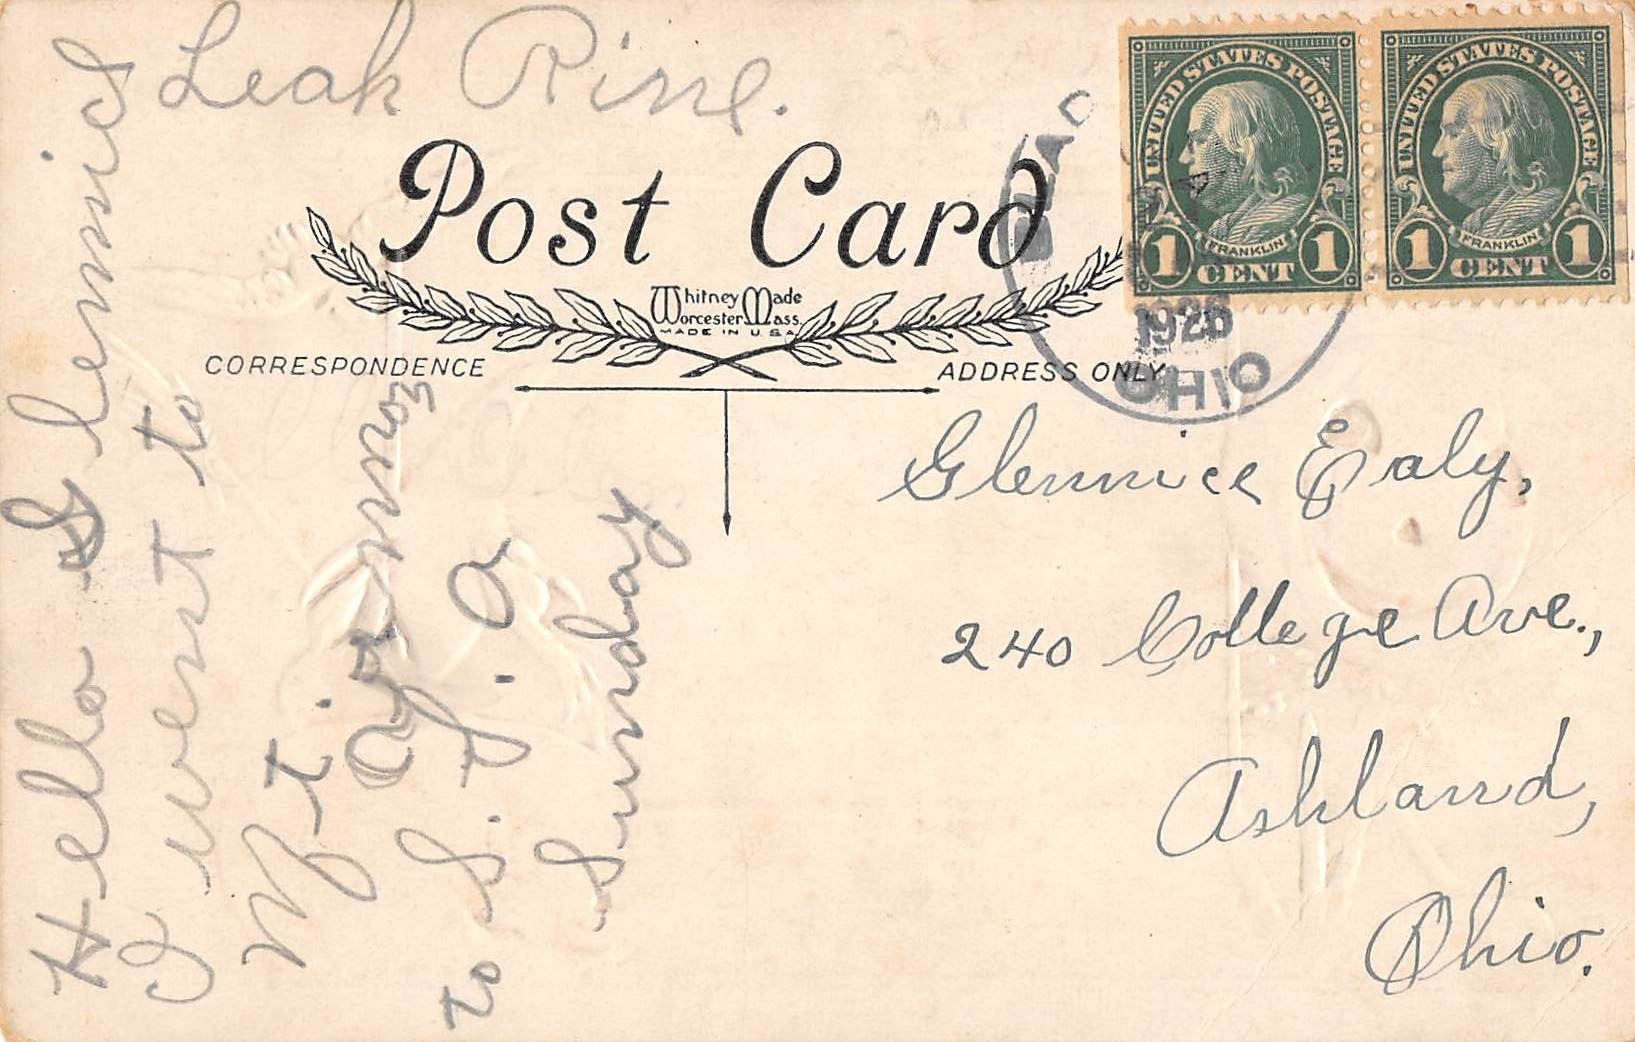 Leah Rine.
UNITED STATES POSTAGE
FRANKLIN
1 CENT 1
UNITED STATES POSTAGE
FRANKLIN
1 CENT 1
1926
OHIO
Post Card
Whitney Made
Worcester Mass.
MADE IN U.S.A.
CORRESPONDENCE
ADDRESS ONLY
Hello Glennice
I went to
Mt.
to S. S. O
Sunday
Glennice Ealy,
240 College Ave.,
Ashland,
Ohio.